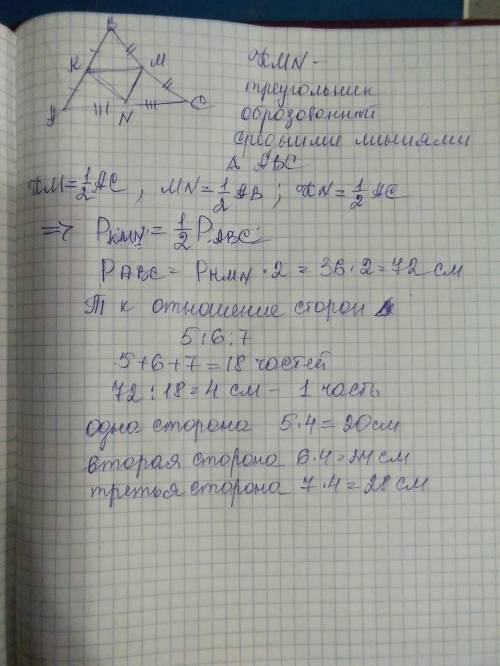 B
K M
A N C
KMN –
треугольник
образованный
средними линиями
Δ ABC
KM = 1/2 AC , MN = 1/2 AB ; KN = 1/2 AC
=> P KMN = 1/2 P ABC
P ABC = P KMN · 2 = 36 · 2 = 72 см
Т к отношение сторон
5:6:7
5+6+7 = 18 частей
72 : 18 = 4 см – 1 часть
одна сторона 5·4 = 20 см
вторая сторона 6·4 = 24 см
третья сторона 7·4 = 28 см